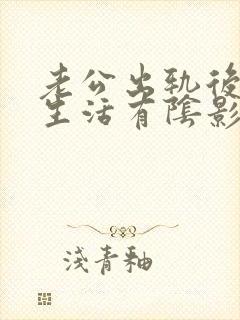 老公出轨後
生活有陰影
淺青釉